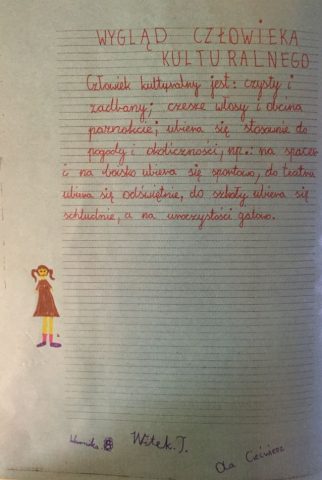 WYGLĄD CZŁOWIEKA
KULTURALNEGO
Człowiek kulturalny jest: czysty i
zadbany; czesze włosy i obcina
paznokcie; ubiera się stosownie do
pogody i okoliczności, np.: na spacer
i na boisko ubiera się sportowo, do teatru
ubiera się odświętnie, do szkoły ubiera się
schludnie, a na uroczystości galowo.
Weronika B Witek.J.
Ola